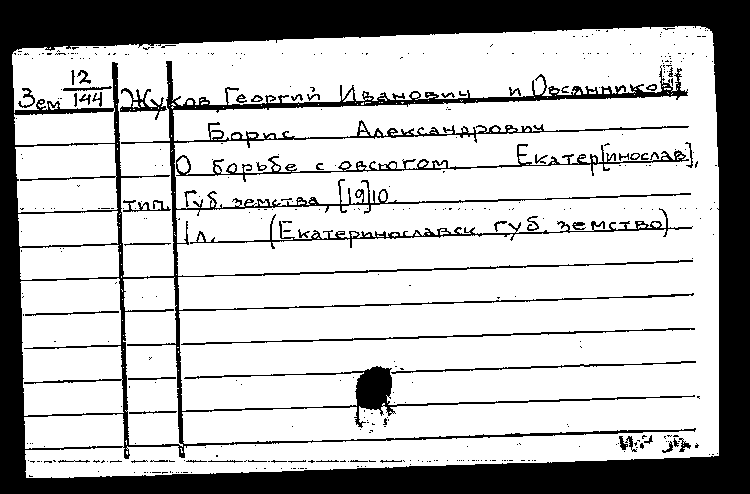 Зем 12/144 Жуков, Георгий Иванович и Овсянников,
Борис Александрович
О борьбе с овсюгом. Екатер[инослав],
тип. Губ. земства, [19]10.
1 л. (Екатеринославск. губ. земство)